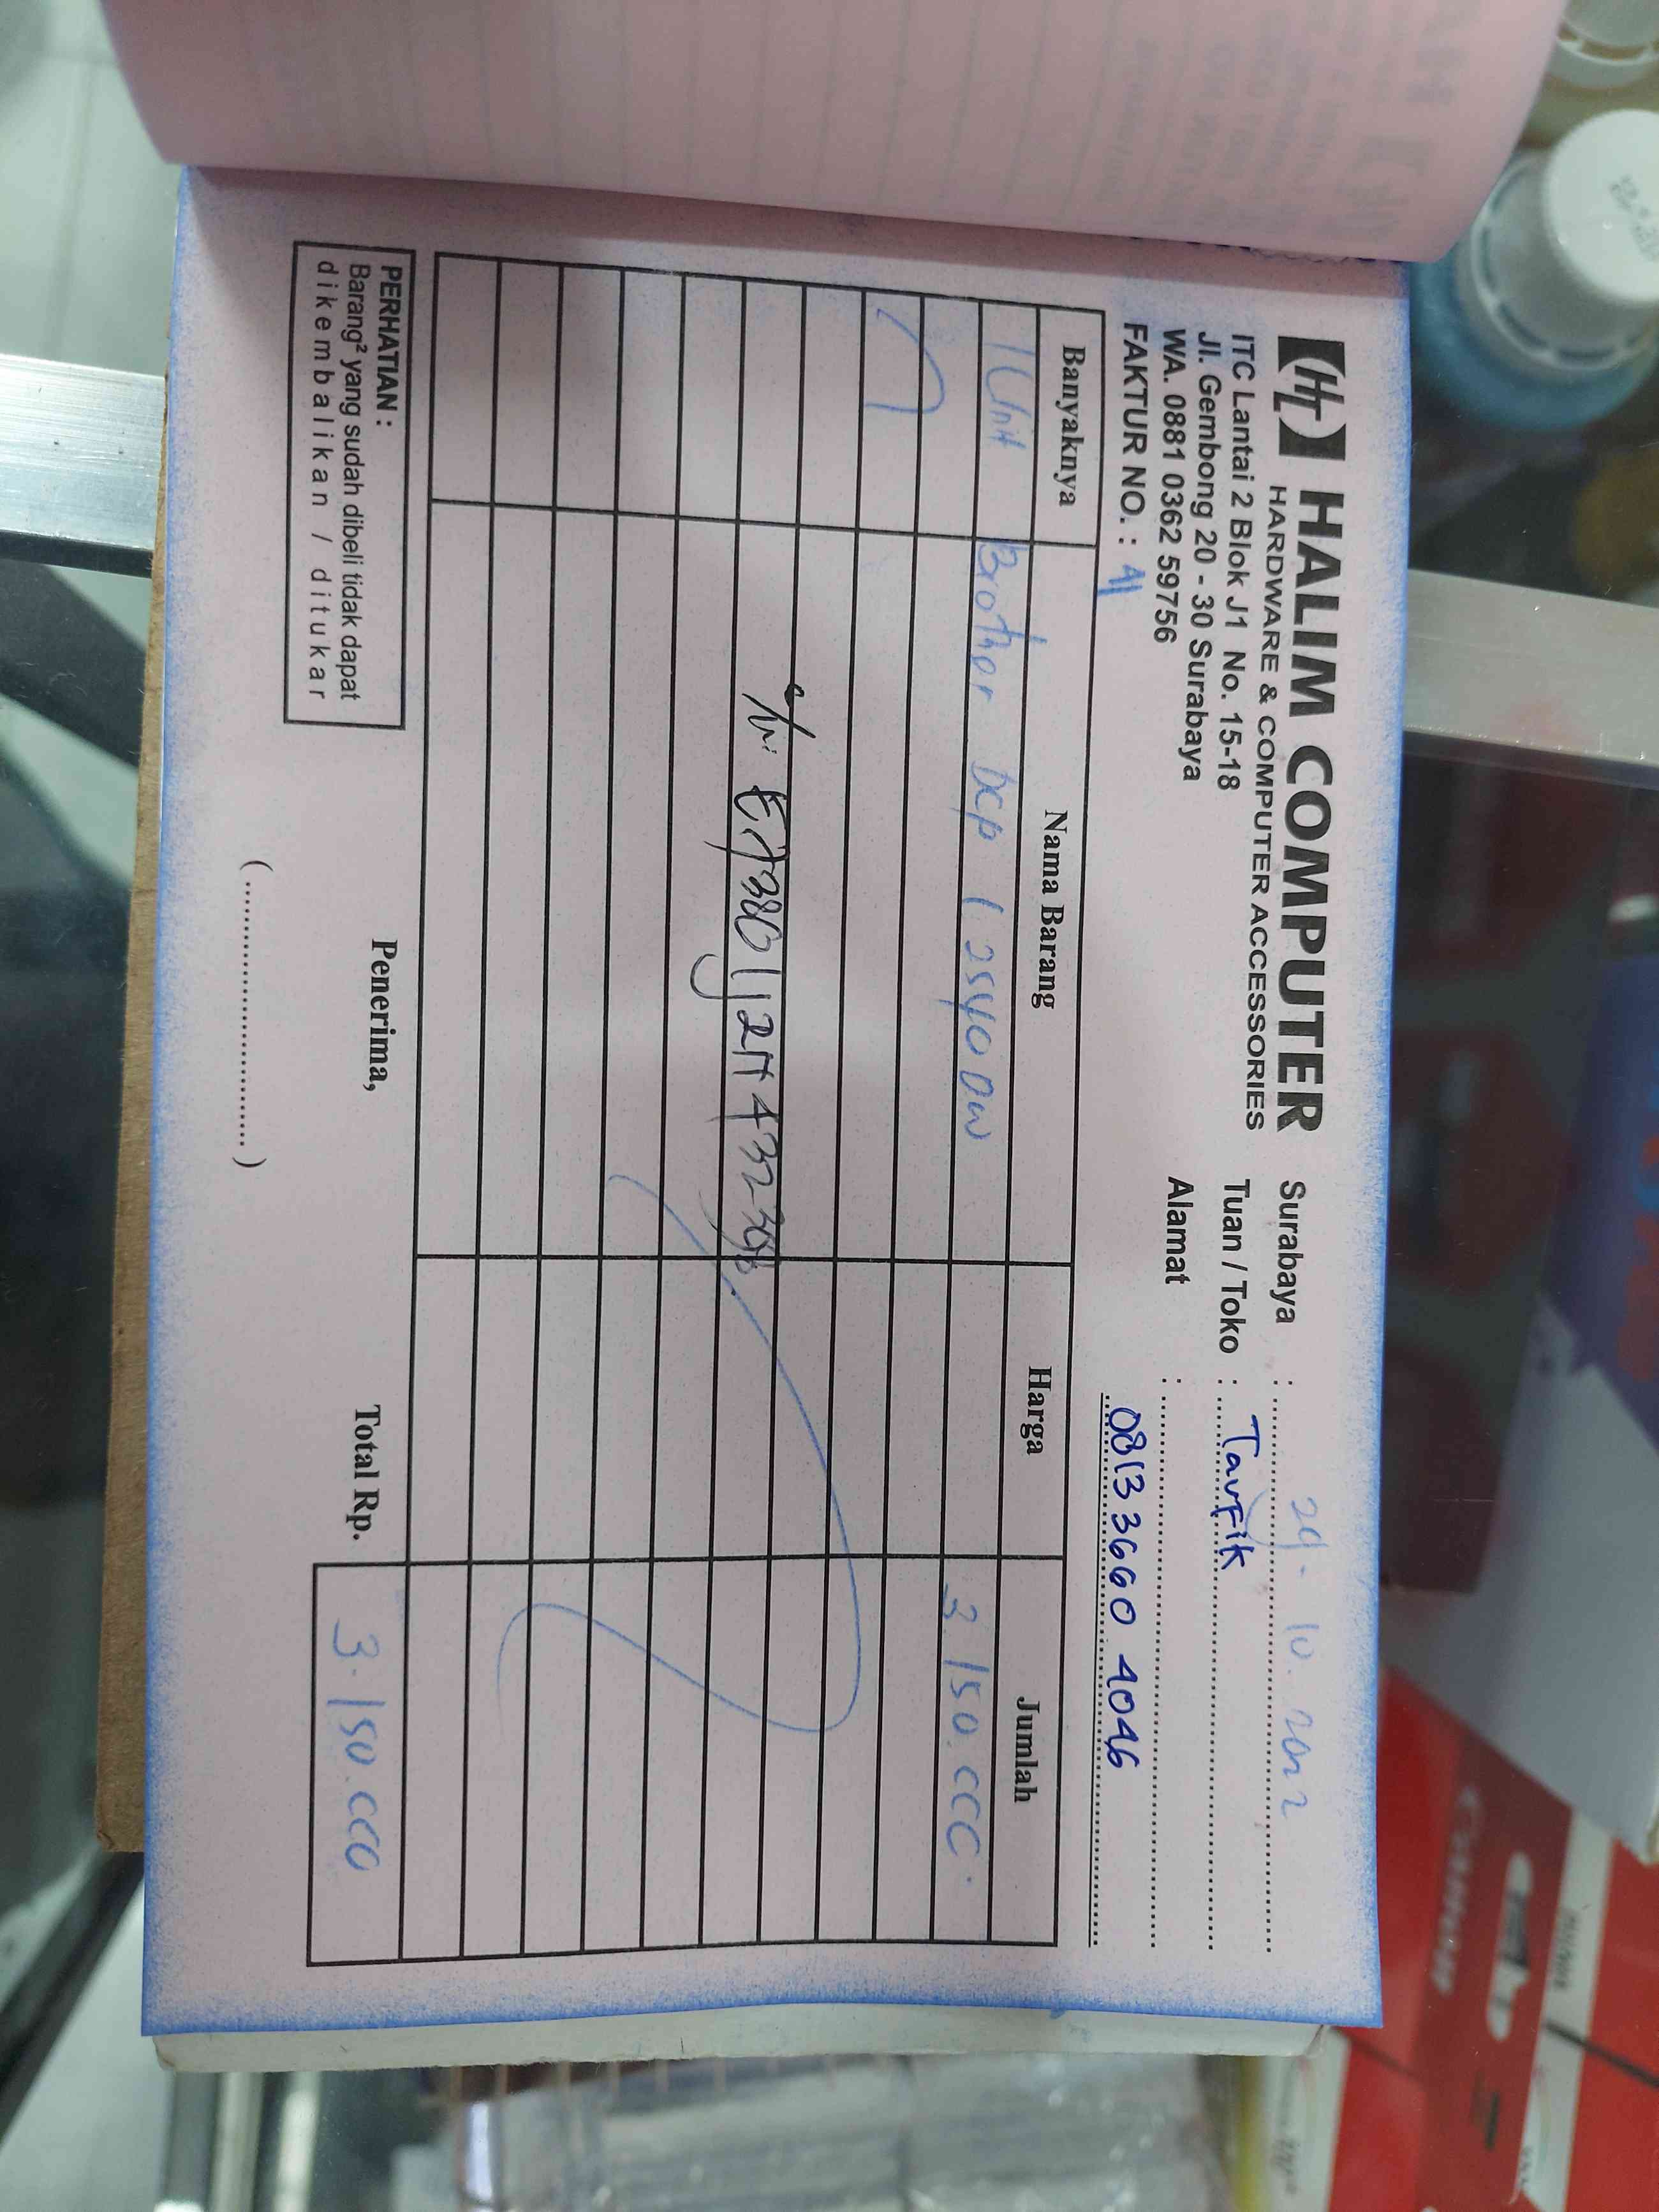 HALIM COMPUTER
HARDWARE & COMPUTER ACCESSORIES
ITC Lantai 2 Blok J1 No. 15-18
Jl. Gembong 20 - 30 Surabaya
WA. 0881 0362 59756
FAKTUR NO. : A1
Surabaya : 29 - 10. 2022
Tuan / Toko : Taufik
Alamat :
0813 3660 4046
Banyaknya Nama Barang Harga Jumlah
1 Unit Brother DCP L 2540 DW 3.150.000
s/n:
PERHATIAN :
Barang² yang sudah dibeli tidak dapat
dikembalikan / ditukar
Penerima,
Total Rp. 3.150.000
CANON